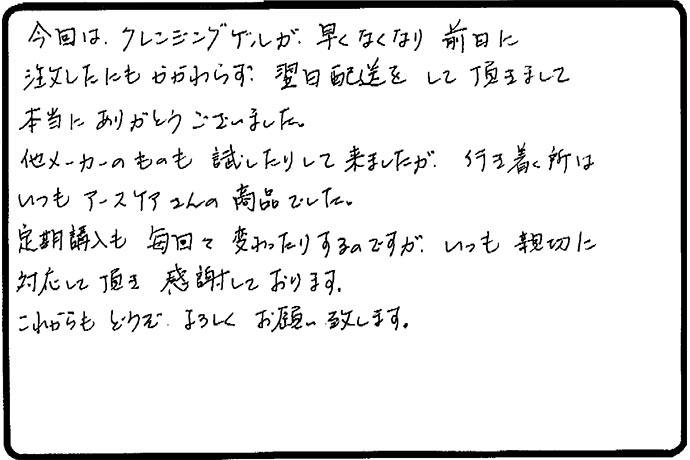 今回は、クレンジングゲルが、早くなくなり 前日に
注文したにもかかわらず、翌日配送をして頂きまして
本当にありがとうございました。
他メーカーのものも 試したりして来ましたが、行き着く所は
いつも アースケアさんの商品でした。
定期購入も 毎回で 変わったりするのですが、いつも 親切に
対応して頂き 感謝しております。
これからも どうぞ、よろしく お願い致します。